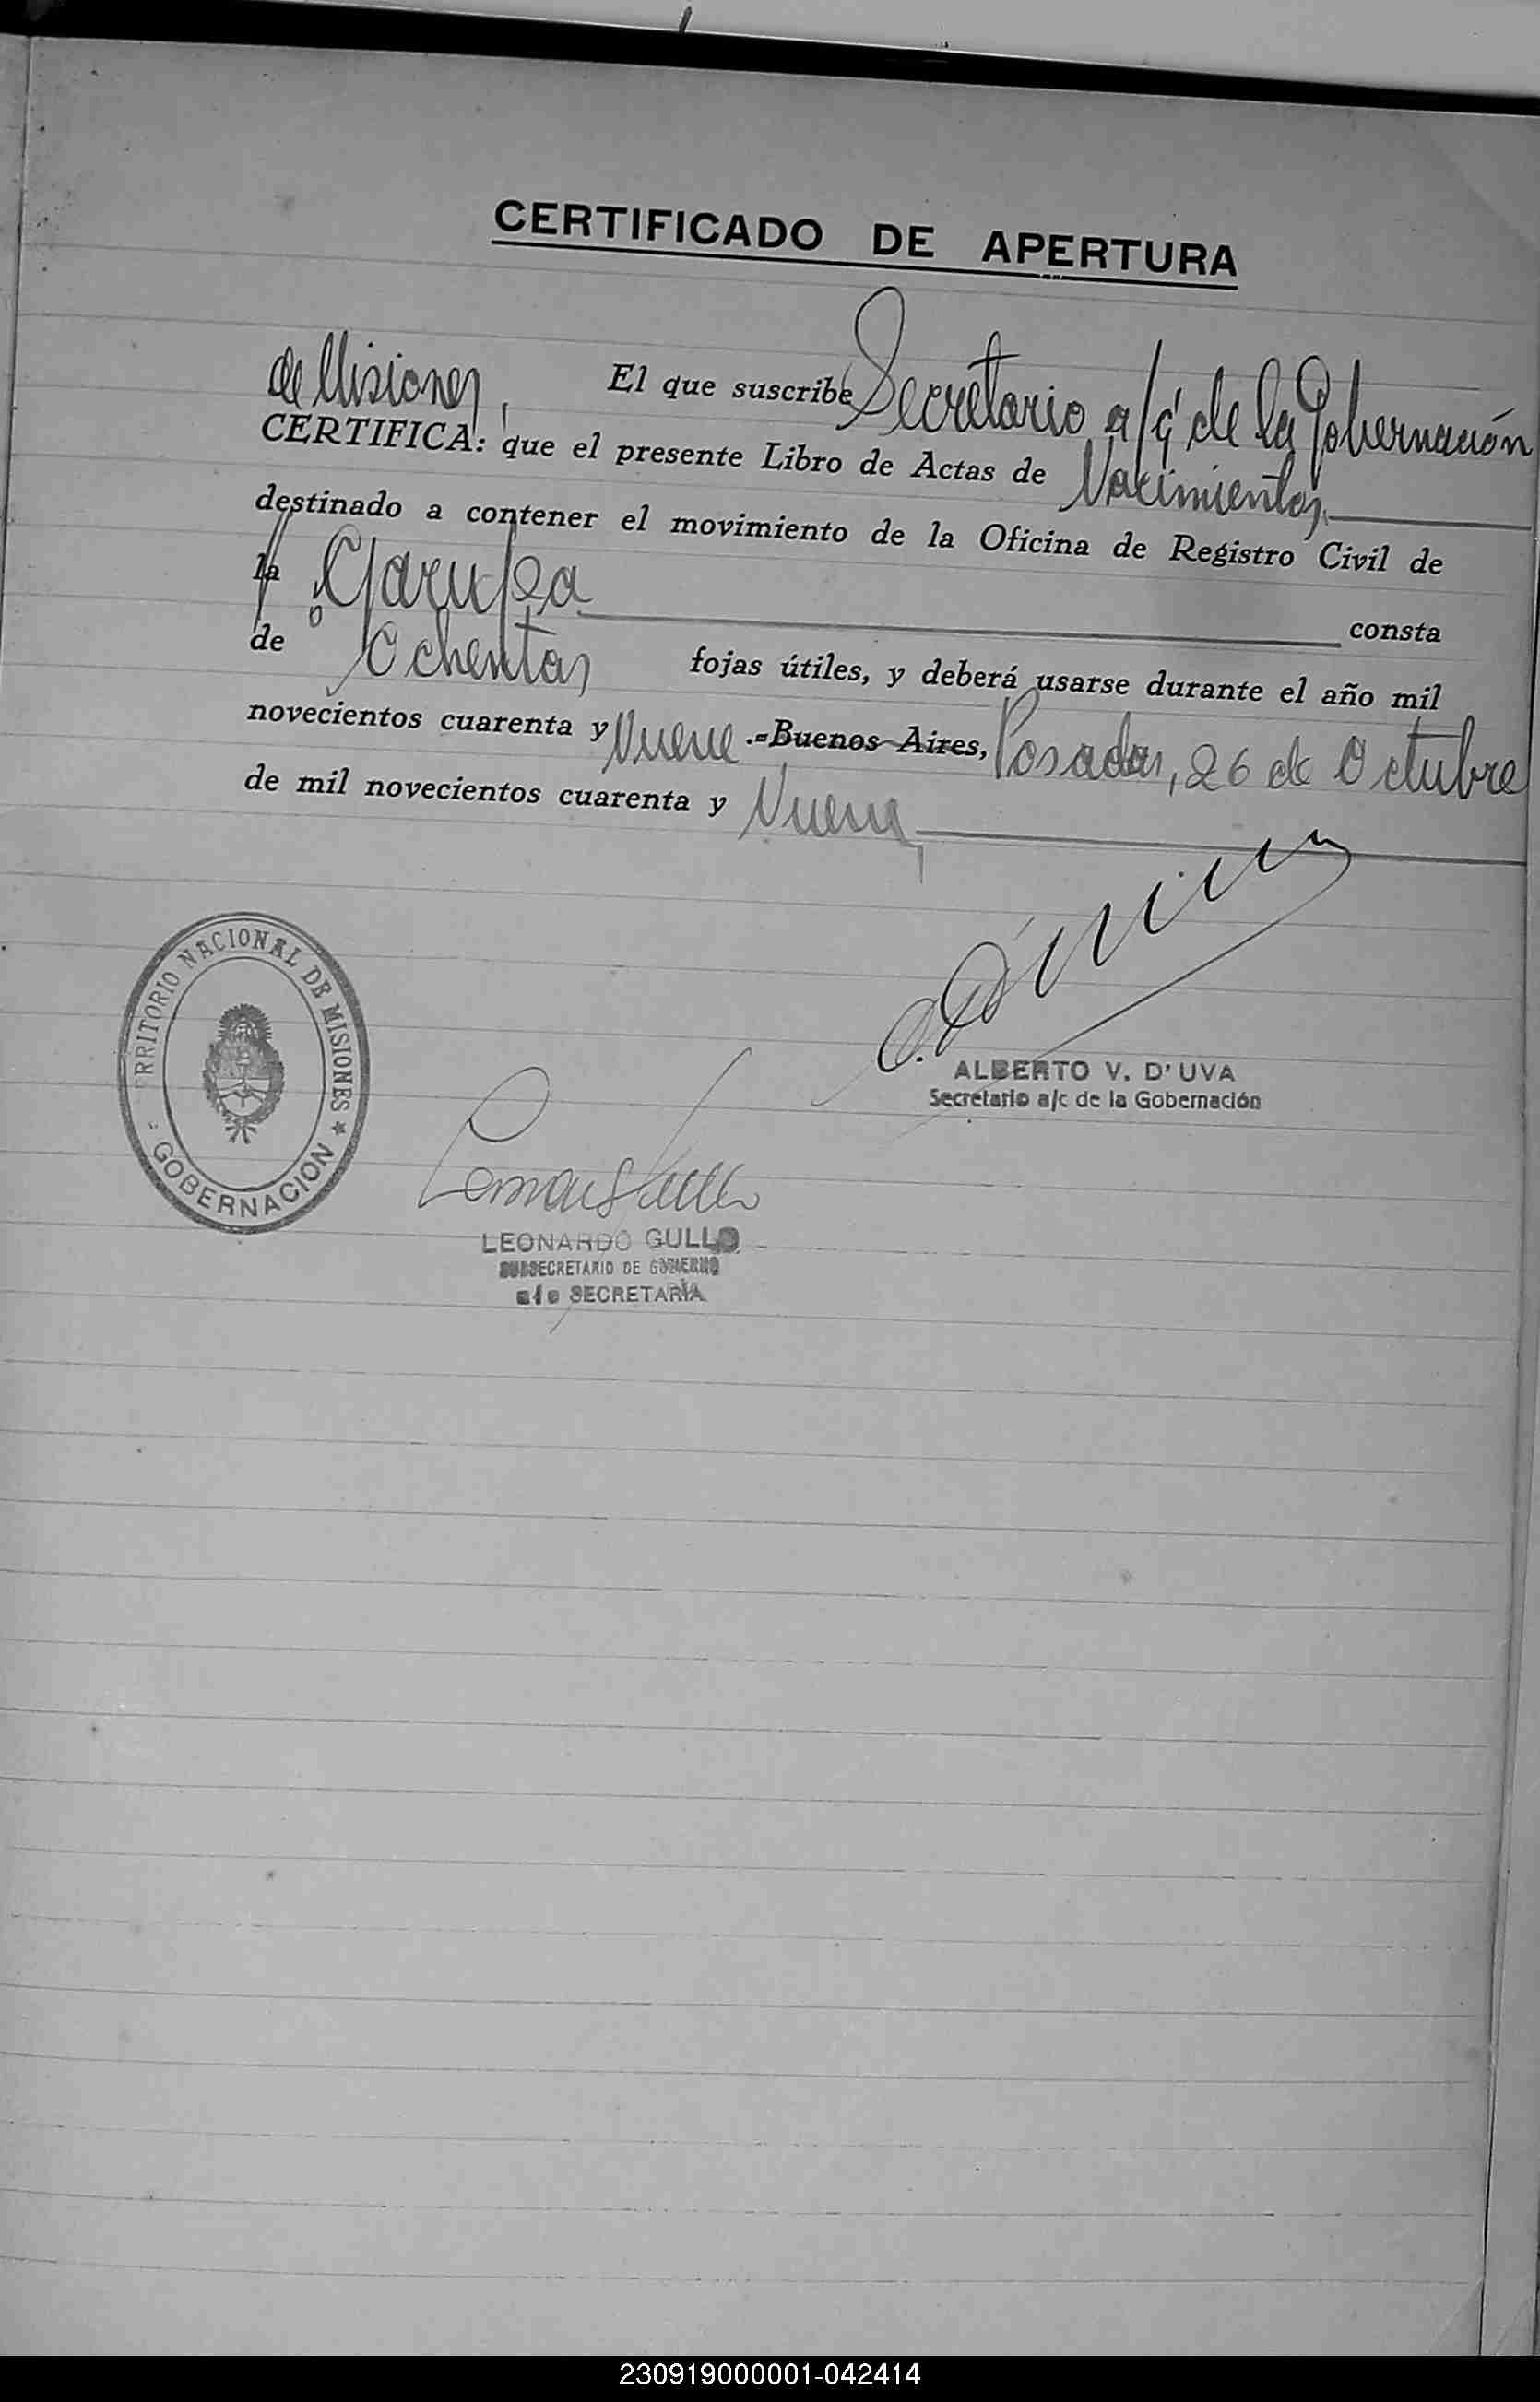 CERTIFICADO DE APERTURA
El que suscribe Secretario a/c de la Gobernación
de Misiones,
CERTIFICA: que el presente Libro de Actas de Nacimientos
destinado a contener el movimiento de la Oficina de Registro Civil de
la Garupa consta
de Ochenta fojas útiles, y deberá usarse durante el año mil
novecientos cuarenta y Nueve .=Buenos Aires, Posadas, 26 de Octubre
de mil novecientos cuarenta y Nueve
TERRITORIO NACIONAL DE MISIONES
GOBERNACION
ALBERTO V. D'UVA
Secretario a/c de la Gobernación
LEONARDO GULLO
SUBSECRETARIO DE GOBIERNO
a/c SECRETARÍA
230919000001-042414